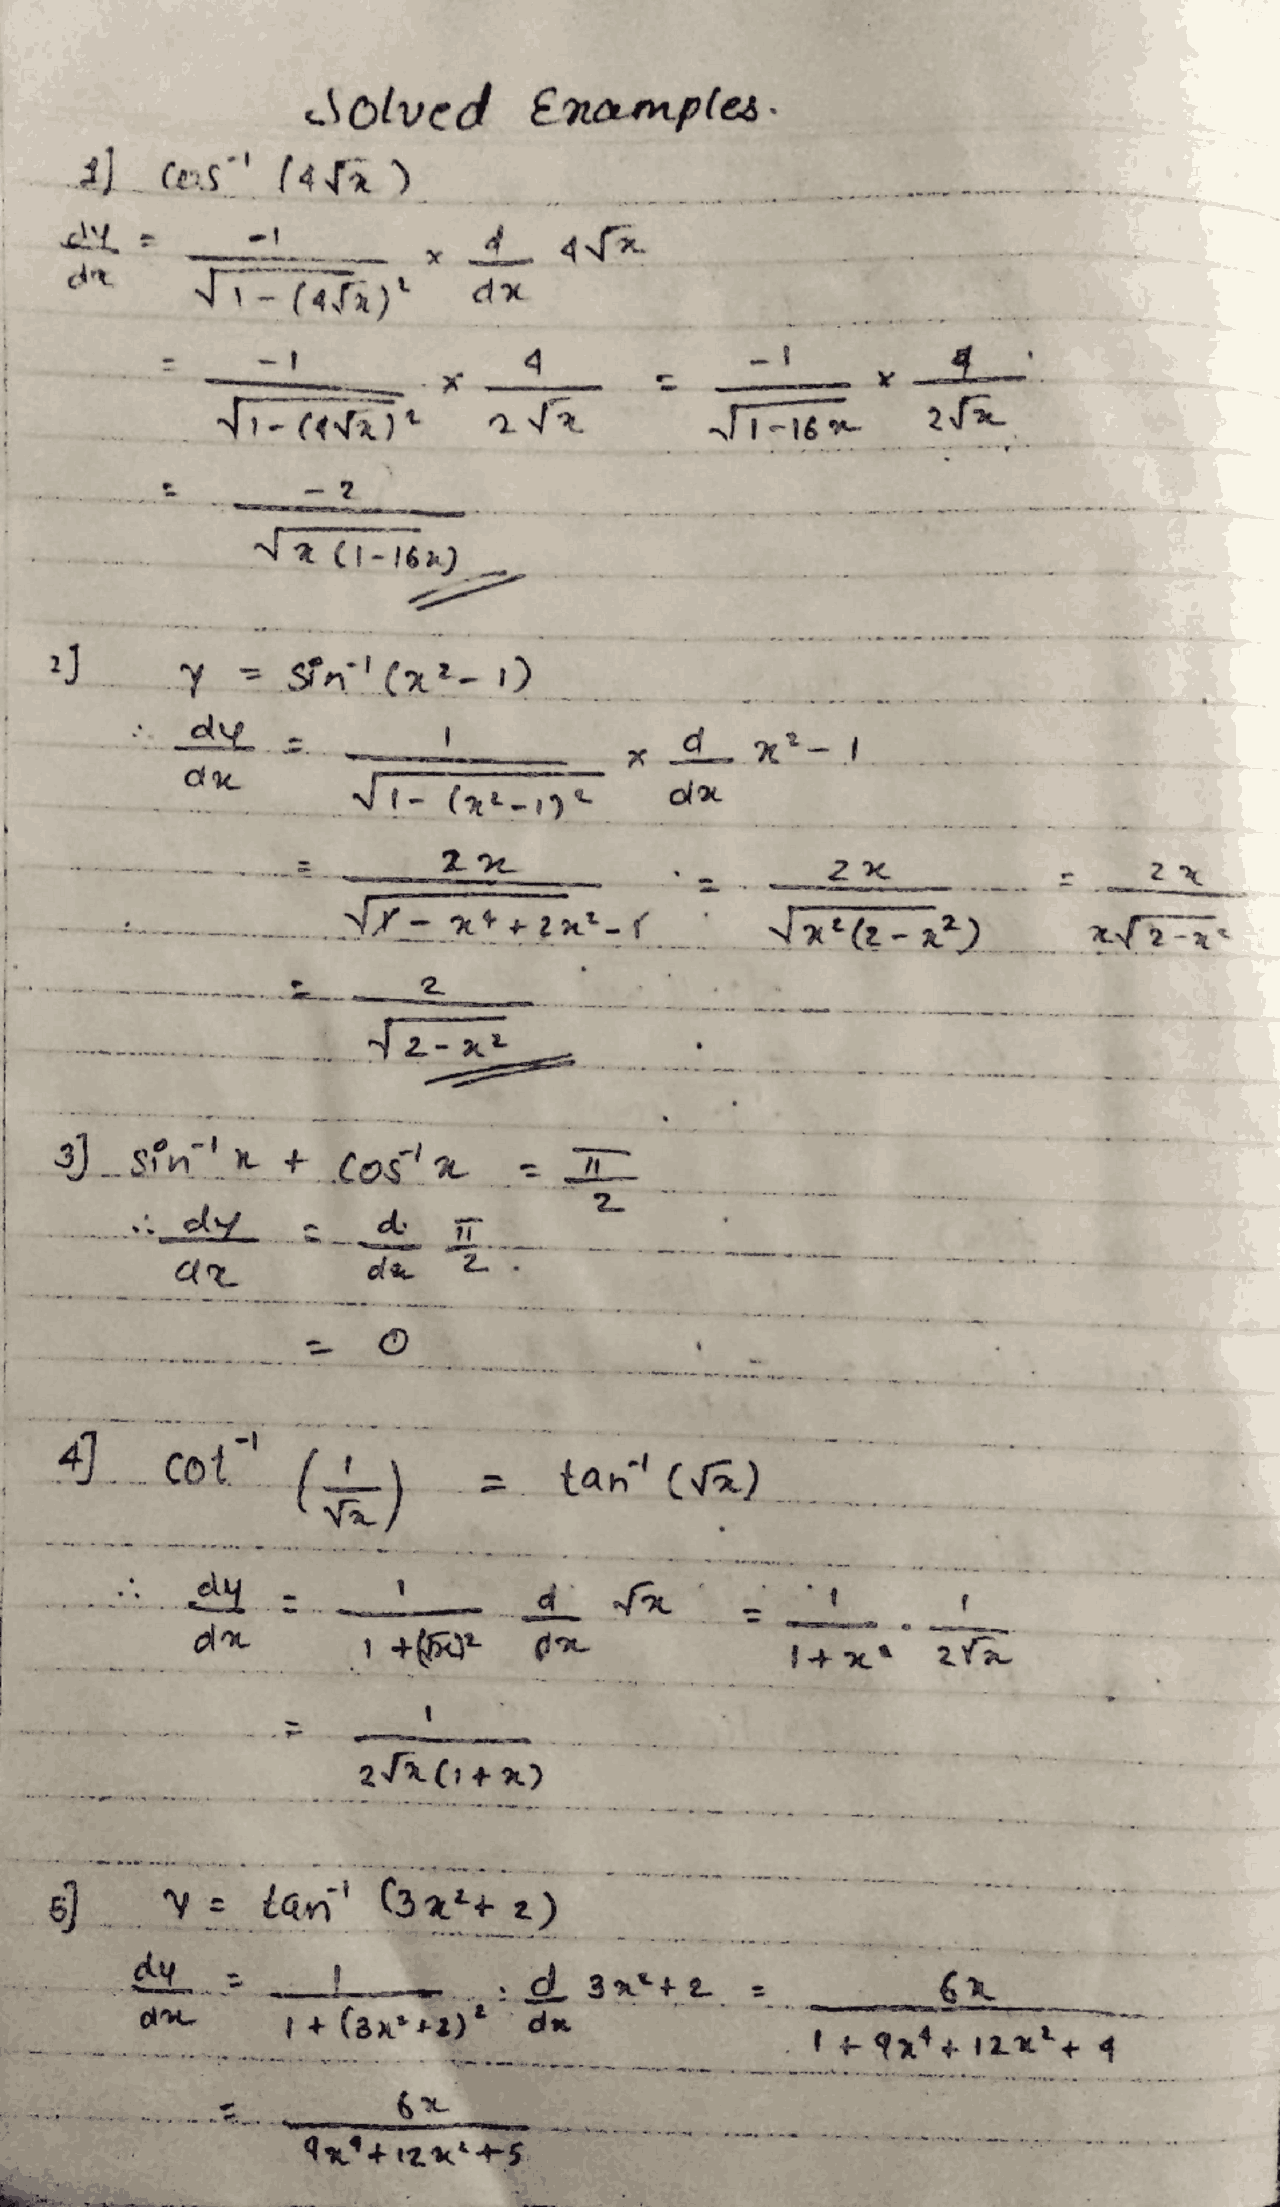 Solved Examples.
1] cos⁻¹ (4√x)
dy/dx = -1/√(1-(4√x)²) × d/dx 4√x
= -1/√(1-(4√x)²) × 4/2√x = -1/√(1-16x) × 4/2√x
= -2/√(x(1-16x))
2] y = sin⁻¹(x²-1)
∴ dy/dx = 1/√(1-(x²-1)²) × d/dx x²-1
= 2x/√(1-x⁴+2x²-1) = 2x/√(x²(2-x²)) = 2x/x√(2-x²)
= 2/√(2-x²)
3] sin⁻¹x + cos⁻¹x = π/2
∴ dy/dx = d/dx π/2.
= 0
4] cot⁻¹ (1/√x) = tan⁻¹(√x)
∴ dy/dx = 1/1+(√x)² d/dx √x = 1/1+x · 1/2√x
= 1/2√x(1+x)
5] y = tan⁻¹ (3x²+2)
dy/dx = 1/1+(3x²+2)² · d/dx 3x²+2 = 6x/1+9x⁴+12x²+4
= 6x/9x⁴+12x²+5